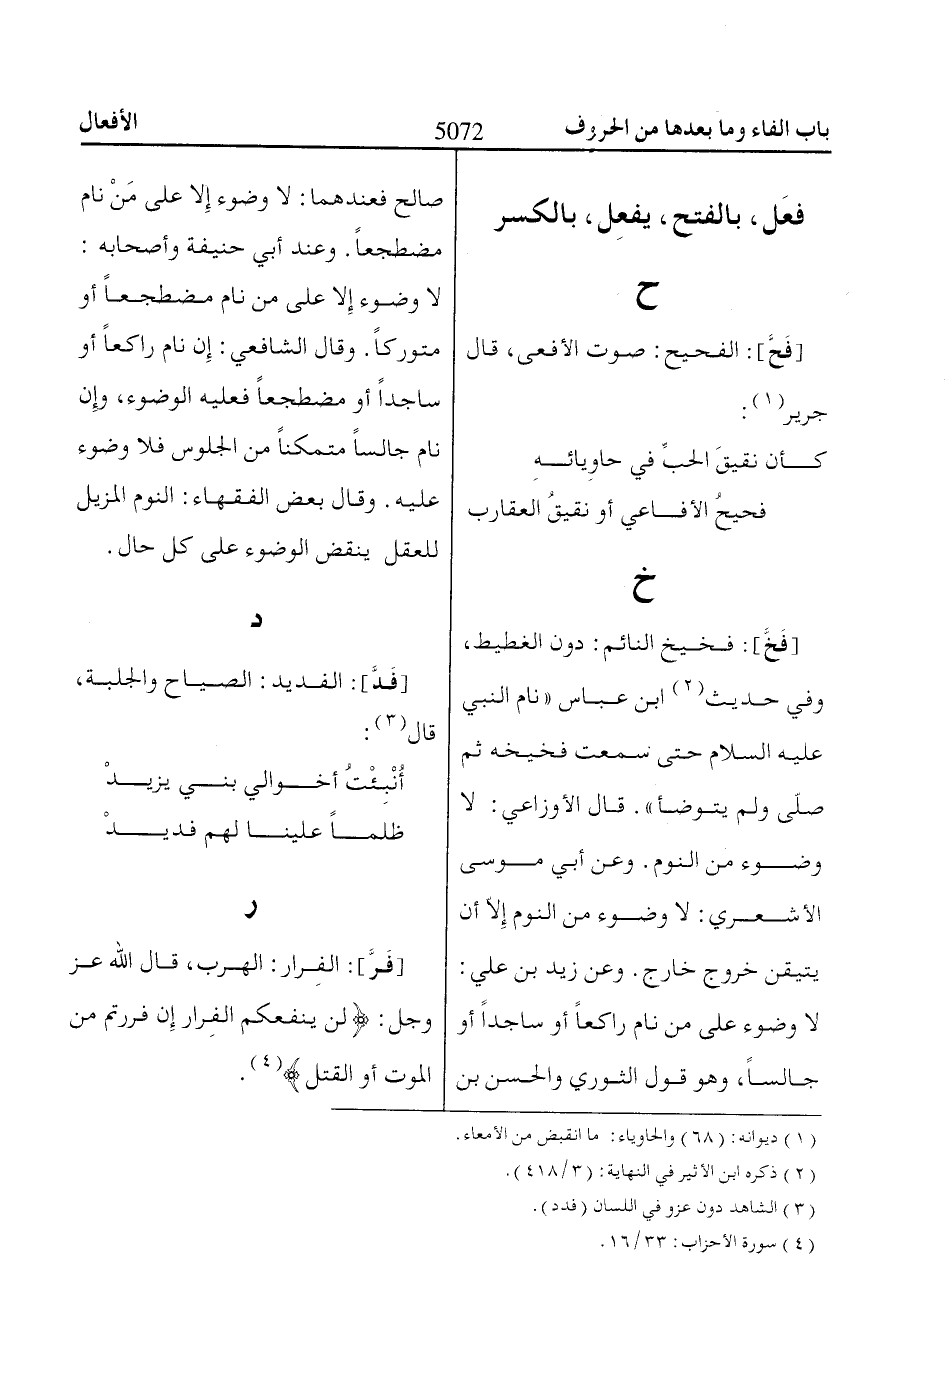 باب الفاء وما بعدها من الحروف 5072 الأفعال
فعَل، بالفتح، يفعِل، بالكسر
ح
[فَحَّ]: الفحيح: صوت الأفعى، قال
جرير(١):
كأن نقيقَ الحبِّ في حاويائه
فحيحُ الأفاعي أو نقيقُ العقارب
خ
[فَخَّ]: فخيخ النائم: دون الغطيط،
وفي حديث(٢) ابن عباس «نام النبي
عليه السلام حتى سمعت فخيخه ثم
صلّى ولم يتوضأ». قال الأوزاعي: لا
وضوء من النوم. وعن أبي موسى
الأشعري: لا وضوء من النوم إلا أن
يتيقن خروج خارج. وعن زيد بن علي:
لا وضوء على من نام راكعاً أو ساجداً أو
جالساً، وهو قول الثوري والحسن بن
صالح فعندهما: لا وضوء إلا على مَنْ نام
مضطجعاً. وعند أبي حنيفة وأصحابه:
لا وضوء إلا على من نام مضطجعاً أو
متوركاً. وقال الشافعي: إن نام راكعاً أو
ساجداً أو مضطجعاً فعليه الوضوء، وإن
نام جالساً متمكناً من الجلوس فلا وضوء
عليه. وقال بعض الفقهاء: النوم المزيل
للعقل ينقض الوضوء على كل حال.
د
[فَدَّ]: الفديد: الصياح والجلبة،
قال(٣):
أُنْبِئْتُ أخوالي بني يزيدْ
ظلماً علينا لهم فديدْ
ر
[فَرَّ]: الفِرار: الهرب، قال الله عز
وجل: ﴿لن ينفعكم الفرار إن فررتم من
الموت أو القتل﴾(٤).
(١) ديوانه: (٦٨) والحاوياء: ما انقبض من الأمعاء.
(٢) ذكره ابن الأثير في النهاية: (٤١٨/٣).
(٣) الشاهد دون عزو في اللسان (فدد).
(٤) سورة الأحزاب: ١٦/٣٣.